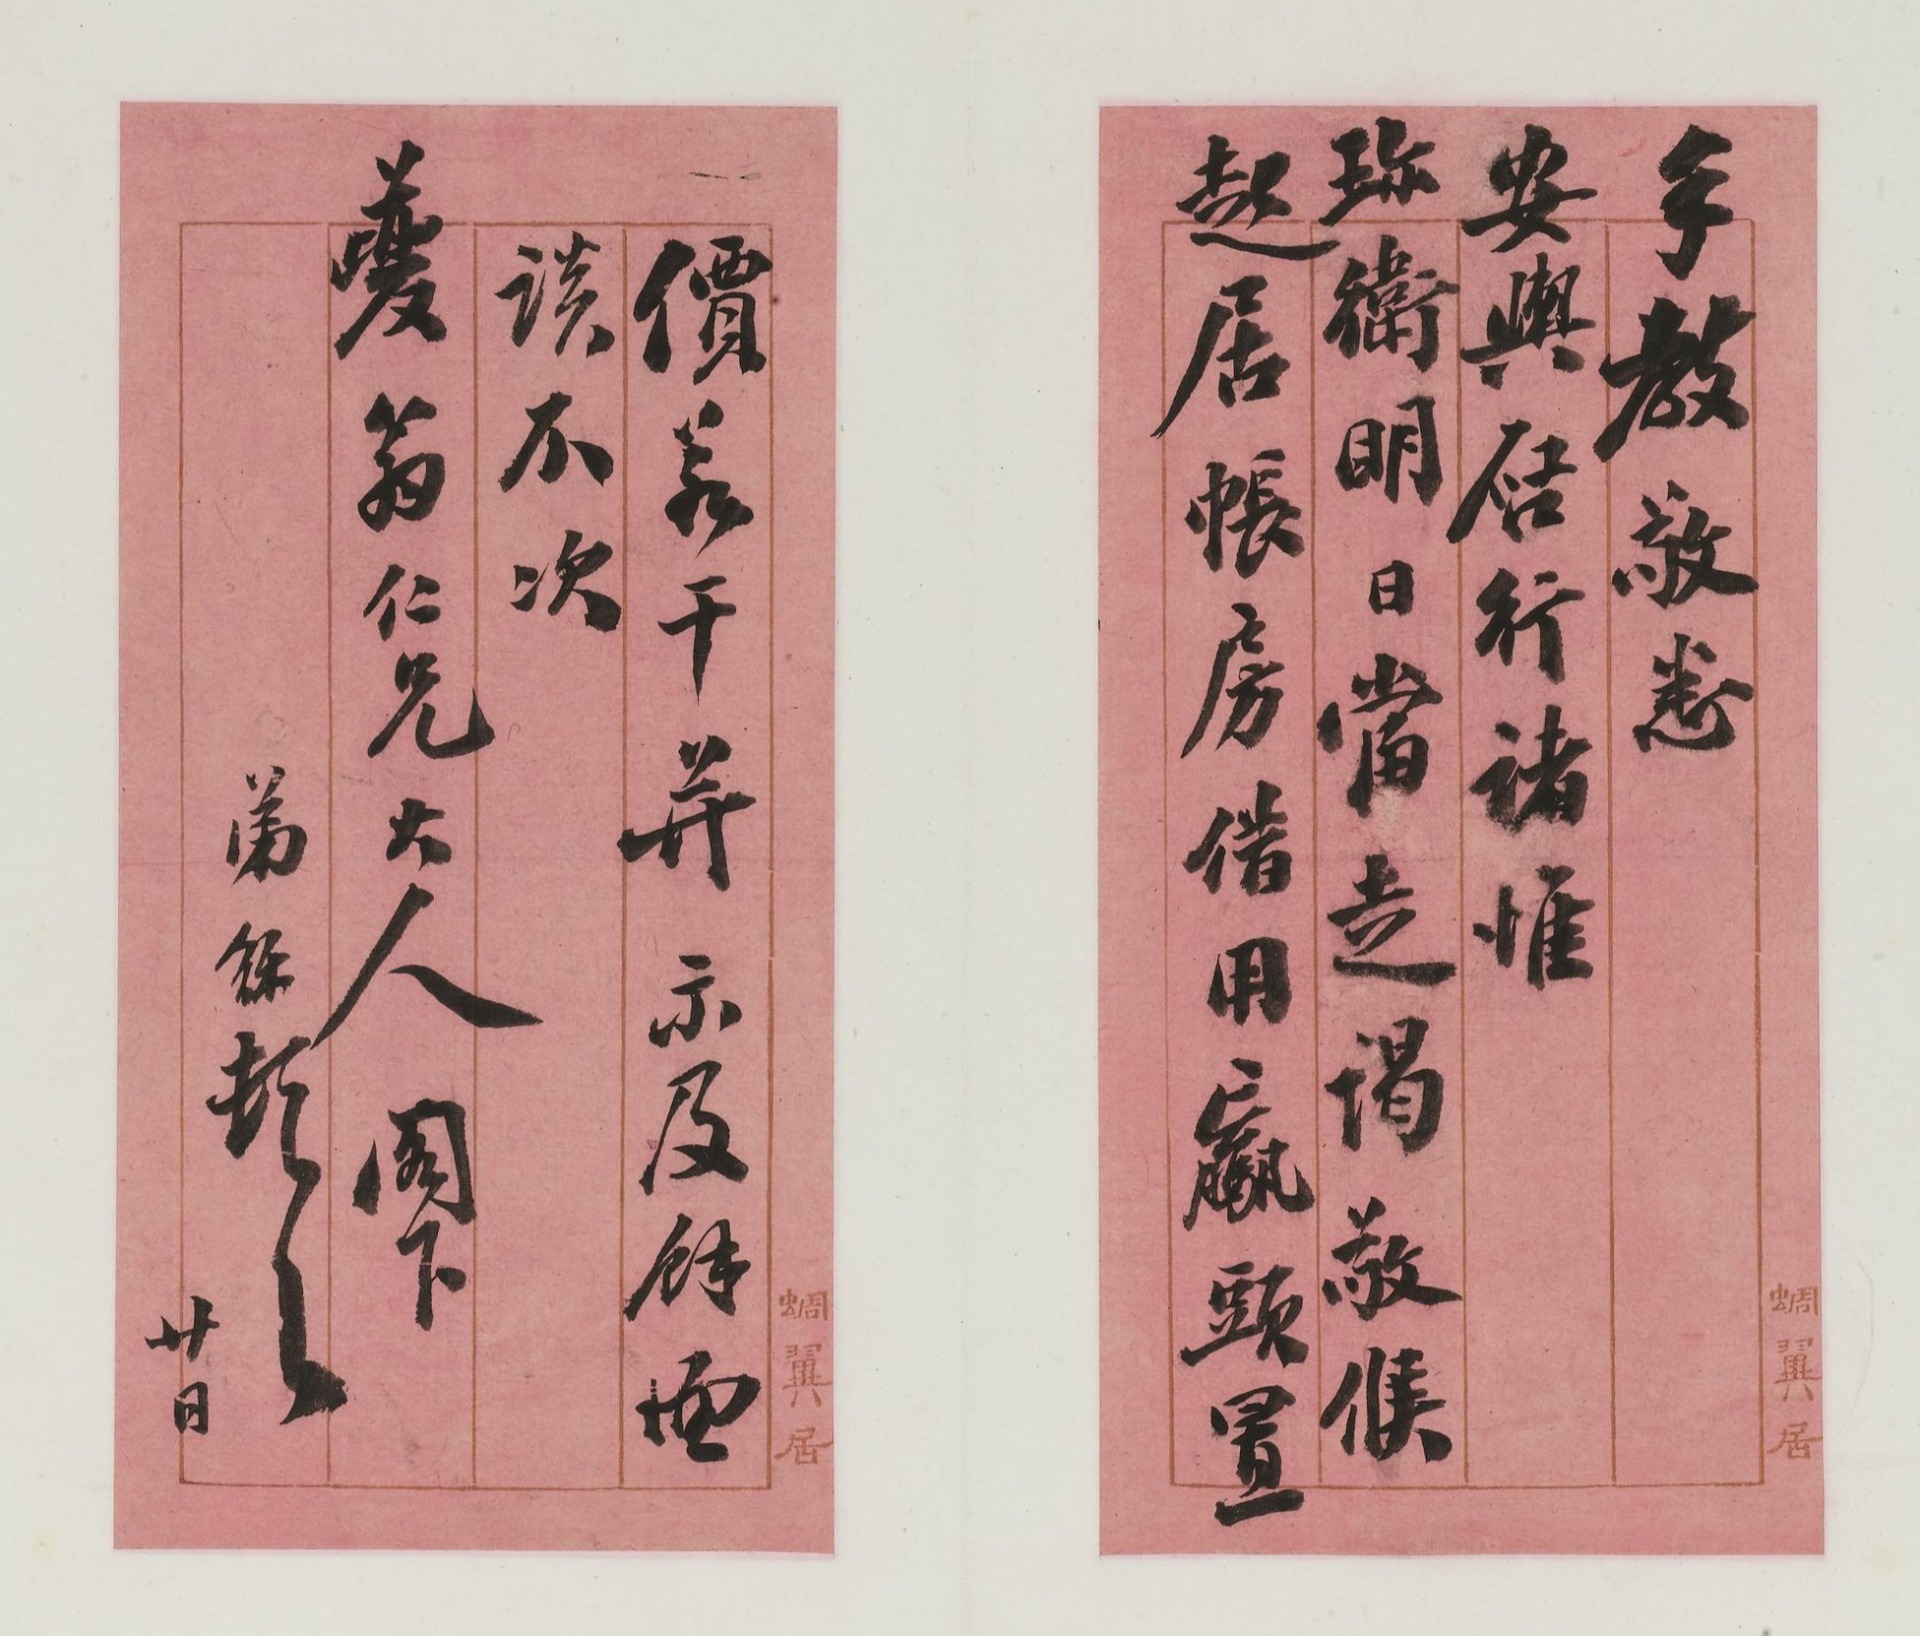 手教敬悉
安輿啟行諸惟
珍衛明日當走謁敬候
起居帳房借用贏頭置
蜩翼居
價若干并示及餘面
談不次
夔翁仁兄大人閣下
弟銤頓
廿日
蜩翼居